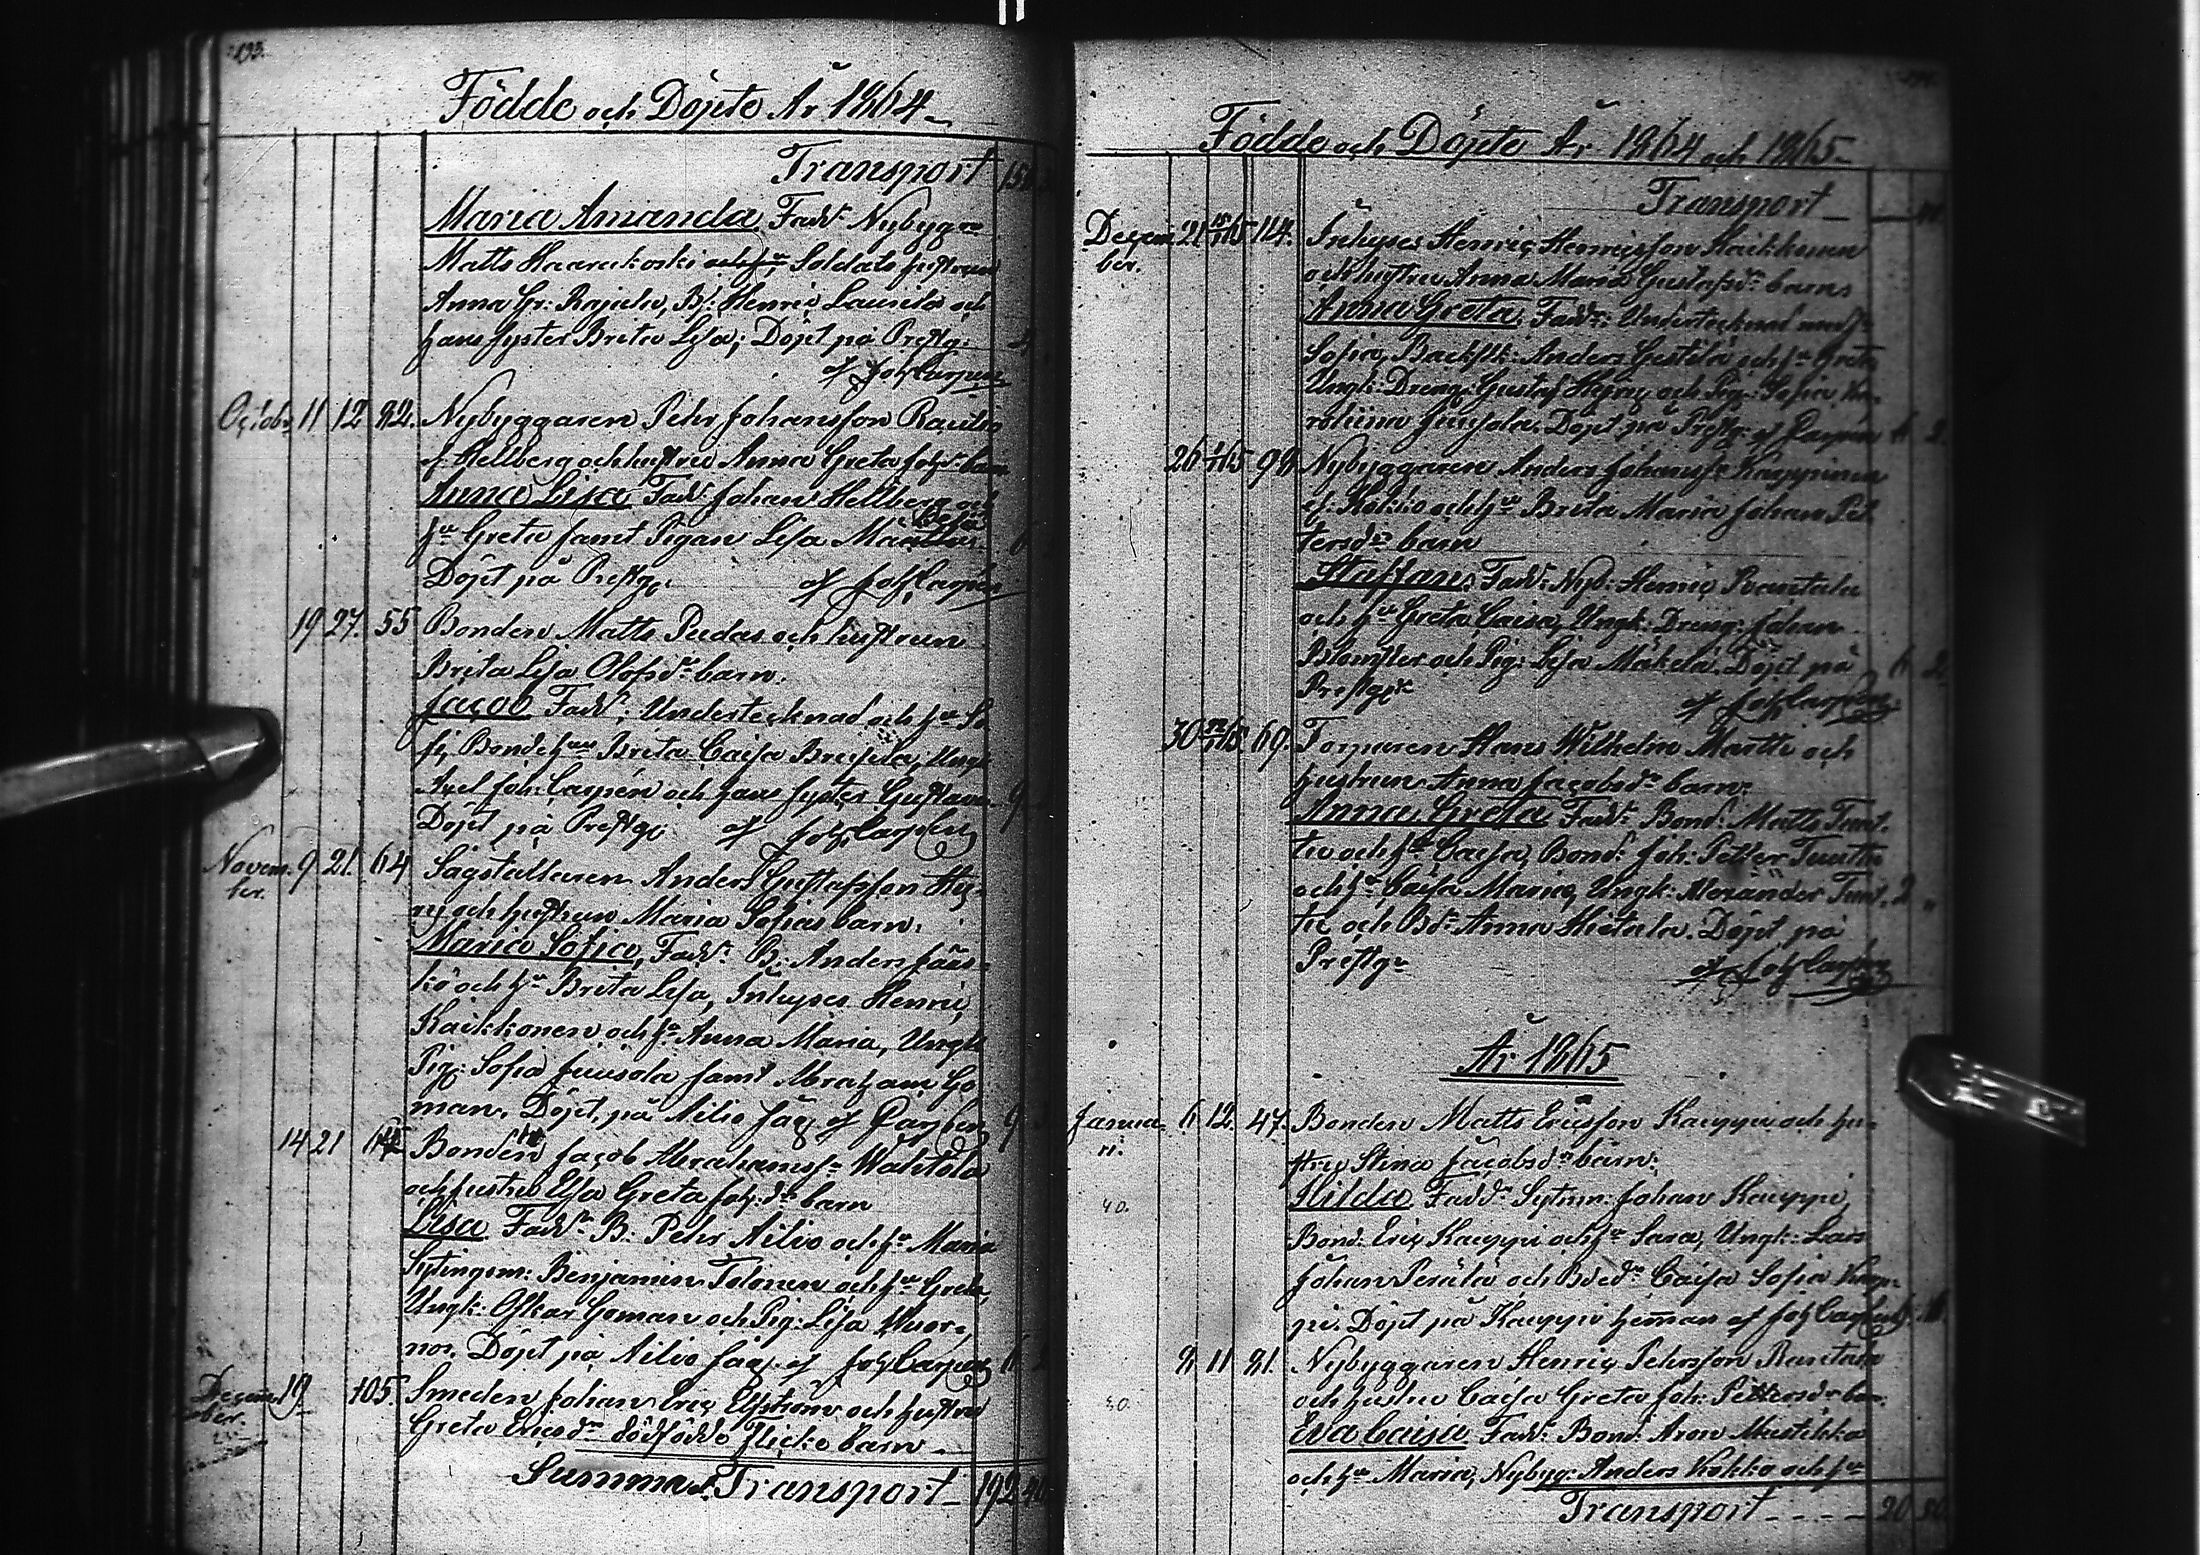 193.
Födde och Döpte År 1864
Transport
Maria Amanda Fadd: Nybygg:
Matts Haarakoski Soldats hustrun
Anna Gr: Rajala, B: Henric Laurila och
hans syster Brita Lisa; Döpt på Prestg:
af Joh Carpen
Octob: 11 12 82. Nybyggaren Pehr Johansson Rautio
l. Hellberg och hustru Anna Greta Johsdr barn
Anna Lisa Fadd: Johan Hellberg och
hu Greta samt Pigan Lisa
Döpt på Prestg: af Joh Carpén
19 27. 55 Bonden Matts Pudas och hustrun
Brita Lisa Olofsdr barn.
Jacob Fadd: Undertecknad och hu So-
fi, Bonde hun Brita Caisa Ungk:
Axel Joh: Carpén och hans syster Gustava
Döpt på Prestg: af Joh, Carpén
Novem- 9 21. 64 Sågställaren Anders Gustafsson Hy-
ber. ry och hustrun Maria Sofias barn.
Maria Sofia, Fadd: B: Anders Jääs-
kö och hu Brita Lisa, Inhyses Henric
Kaikkonen och hu Anna Maria, Ungk:
Pig: Sofia Juusola samt Abraham Ho-
man. Döpt på Ailio Såg af Carpén 9
14 21 Bonden Jacob Abrahamss: Wahtola
och hustru Elsa Greta Joh:dr barn
Lisa Fadd: B: Pehr Ailio och hu Maria
Sytingsm: Benjamin Tolonen och hu Greta,
Ungk: Oskar Homan och Pig: Lisa Wuor-
nos. Döpt på Ailio Såg af Joh Carpén
Decem- 19. 105. Smeden Johan Eric Elfström och hustru
ber. Greta Ericsdr dödfödde flicke barn
Summa Transport 192 40
Födde och Döpte År 1864 och 1865
Transport
Decem- 21 114. Inhyses Henric Henricsson Kaikkonen
ber. och hustru Anna Maria Gustafsdr barns
Anna Greta, Fadd: Undertecknad med hu
Sofia, Anders och hu Greta
Ungk: Dreng: Gustaf och Pig: Sofia Ka-
rolina Juusola. Döpt på Prestg: af Carpén 6 2.
26 98 Nybyggaren Anders Johanss: Karppinen
l. Kokko och hu Brita Maria Johan Pet-
tersdr barn
Staffan, Fadd: Nyb: Henric Rautala
och hu Greta Caisa, Ungk: Dreng: Johan
Blomster och Pig: Lisa Mäkelä. Döpt på 6 2
Prestg: af Joh Carpén
30 69. Torparen Hans Wilhelm Martti och
hustrun Anna Jacobsdr barn:
Anna Greta Fadd: Bond: Matts Tuut-
tio och hu Caisa, Bond: Joh: Petter Tuuttio
och hu Caisa Maria, Ungk: Alexander Tuut- 2 "
tio och Bdr Anna Hietala. Döpt på
Prestg: af Joh Carpén
År 1865
Janua- 6 12. 47. Bonden Matts Ericsson Kauppi och hu-
ri. stru Stina Jacobsdr barn:
Hilda Fadd: Sytnm: Johan Kauppi,
Bond: Eric Kauppi och hu Sara, Ungk: Lars
Johan Perälä och Bdedr Caisa Sofia Kaup-
pi. Döpt på Kauppi heman af Joh Carpén
8 11 81. Nybyggaren Henric Pehrsson Rautala
och hustru Caisa Greta Joh: Pettersdr barn.
Eva Caisa Fadd: Bond: Aron Mustikka
och hu Maria, Nybyg: Anders Kokko och hu
Transport 20 80